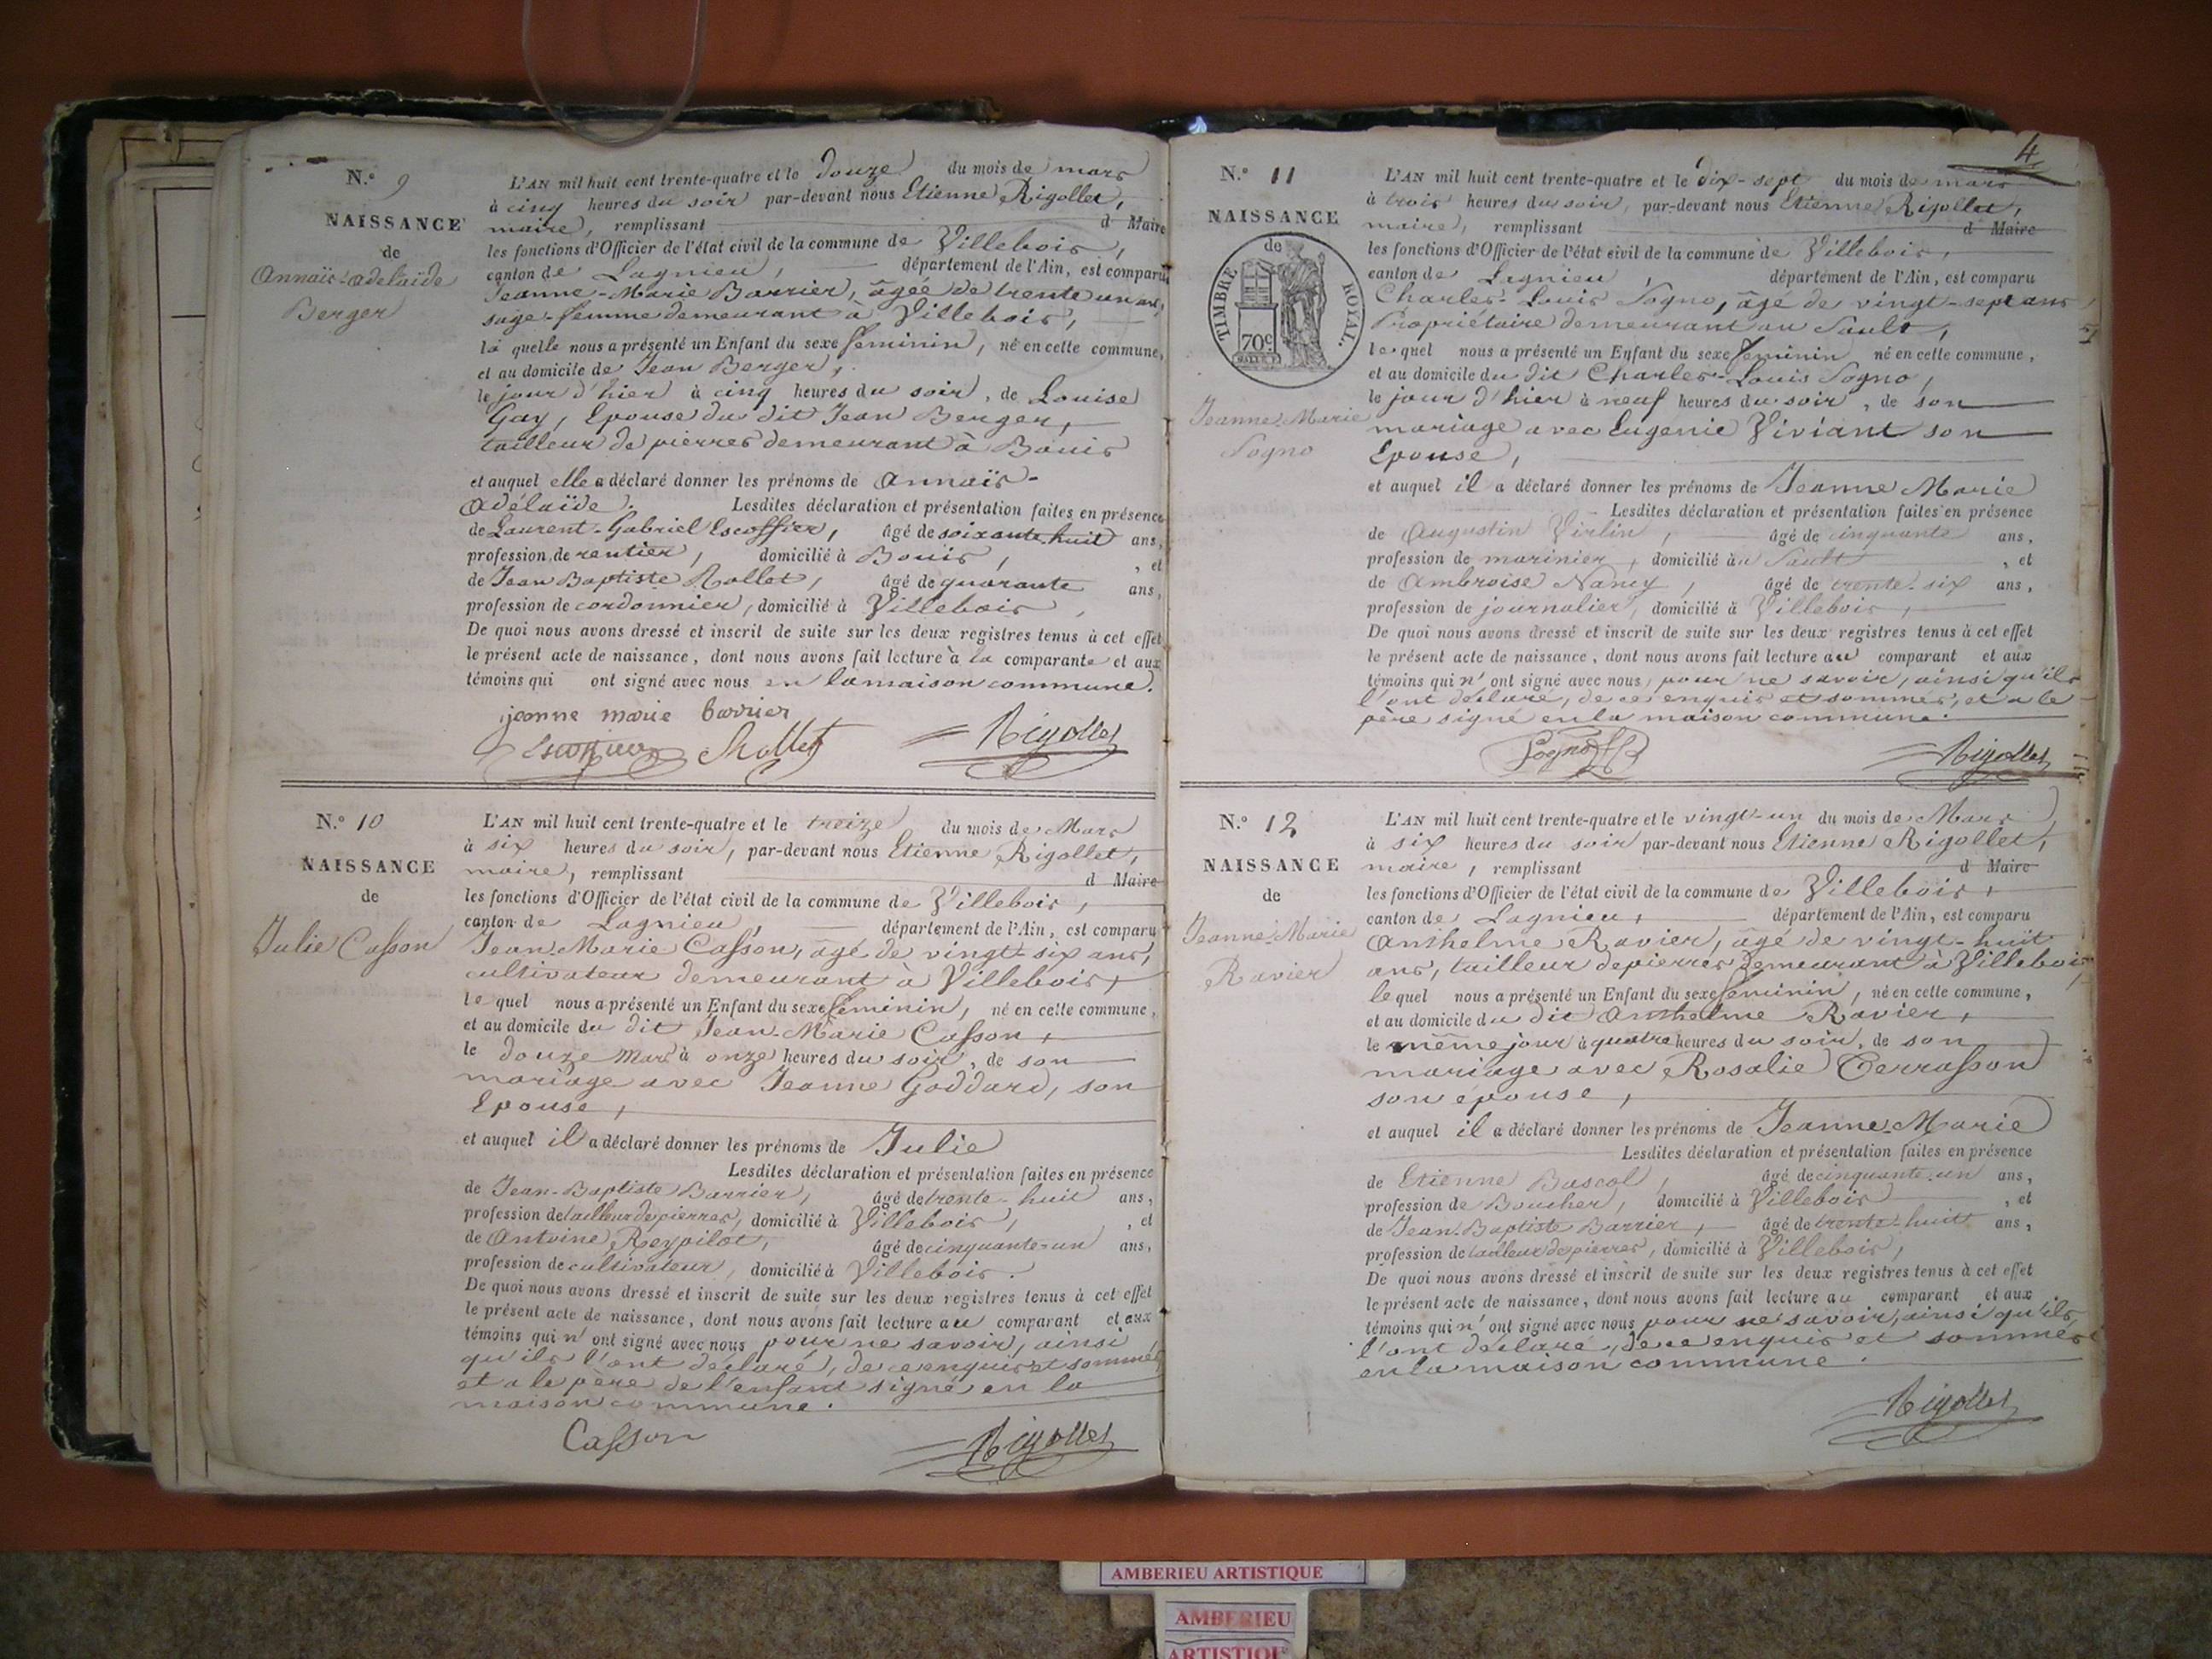 N.° 9
NAISSANCE
de
Annaïs-adelaïde
Berger
L'AN mil huit cent trente-quatre et le douze du mois de mars
à cinq heures du soir par-devant nous Etienne Rigollet,
maire, remplissant d Maire
les fonctions d'Officier de l'état civil de la commune de Villebois,
canton de Lagnieu, département de l'Ain, est comparu
Jeanne-Marie Barrier, âgée de trente un ans,
sage-femme demeurant à Villebois,
la quelle nous a présenté un Enfant du sexe feminin, né en cette commune,
et au domicile de Jean Berger,
le jour d'hier à cinq heures du soir, de Louise
Gay, Epouse du dit Jean Berger,
tailleur de pierres demeurant à Bouis
et auquel elle a déclaré donner les prénoms de Annaïs-
Adélaïde. Lesdites déclaration et présentation faites en présence
de Laurent-Gabriel Escoffier, âgé de soixante huit ans,
profession de rentier, domicilié à Bouis, , et
de Jean Baptiste Rollet, âgé de quarante ans,
profession de cordonnier, domicilié à Villebois,
De quoi nous avons dressé et inscrit de suite sur les deux registres tenus à cet effet
le présent acte de naissance, dont nous avons fait lecture à la comparante et aux
témoins qui ont signé avec nous en la maison commune.
jeanne marie barrier
Rigollet
N.° 10
NAISSANCE
de
Julie Casson
L'AN mil huit cent trente-quatre et le treize du mois de Mars
à six heures du soir, par-devant nous Etienne Rigollet,
maire, remplissant d Maire
les fonctions d'Officier de l'état civil de la commune de Villebois,
canton de Lagnieu, département de l'Ain, est comparu
Jean-Marie Casson, âgé de vingt-six ans,
cultivateur demeurant à Villebois,
le quel nous a présenté un Enfant du sexe féminin, né en cette commune,
et au domicile du dit Jean-Marie Casson,
le douze mars à onze heures du soir, de son
mariage avec Jeanne Goddard, son
Epouse,
et auquel il a déclaré donner les prénoms de Julie
Lesdites déclaration et présentation faites en présence
de Jean-Baptiste Barrier, âgé de trente-huit ans,
profession de tailleur de pierres, domicilié à Villebois, , et
de Antoine Reypilot, âgé de cinquante-un ans,
profession de cultivateur, domicilié à Villebois.
De quoi nous avons dressé et inscrit de suite sur les deux registres tenus à cet effet
le présent acte de naissance, dont nous avons fait lecture au comparant et aux
témoins qui n'ont signé avec nous pour ne savoir, ainsi
qu'ils l'ont déclaré, de ce enquis et sommés
et a le père de l'enfant signé en la
maison commune.
Casson
Rigollet
4
N.° 11
NAISSANCE
de
TIMBRE ROYAL.
70c
Jeanne Marie
Sogno
L'AN mil huit cent trente-quatre et le dix-sept du mois de mars
à trois heures du soir, par-devant nous Etienne Rigollet,
maire, remplissant d Maire
les fonctions d'Officier de l'état civil de la commune de Villebois,
canton de Lagnieu, département de l'Ain, est comparu
Charles-Louis Sogno, âgé de vingt-sept ans
Propriétaire demeurant au Sault,
lequel nous a présenté un Enfant du sexe feminin né en cette commune,
et au domicile du dit Charles-Louis Sogno,
le jour d'hier à neuf heures du soir, de son
mariage avec Eugénie Viviant son
Epouse,
et auquel il a déclaré donner les prénoms de Jeanne Marie
Lesdites déclaration et présentation faites en présence
de Augustin Virlin, âgé de cinquante ans,
profession de marinier, domicilié au Sault , et
de Ambroise Nancy, âgé de trente-six ans,
profession de journalier, domicilié à Villebois,
De quoi nous avons dressé et inscrit de suite sur les deux registres tenus à cet effet
le présent acte de naissance, dont nous avons fait lecture au comparant et aux
témoins qui n'ont signé avec nous, pour ne savoir, ainsi qu'ils
l'ont déclaré, de ce enquis et sommés, et a le
père signé en la maison commune.
Sogno
Rigollet
N.° 12
NAISSANCE
de
Jeanne-Marie
Ravier
L'AN mil huit cent trente-quatre et le vingt-un du mois de Mars
à six heures du soir par-devant nous Etienne Rigollet,
maire, remplissant d Maire
les fonctions d'Officier de l'état civil de la commune de Villebois,
canton de Lagnieu, département de l'Ain, est comparu
Anthelme Ravier, âgé de vingt-huit
ans, tailleur de pierres demeurant à Villebois,
lequel nous a présenté un Enfant du sexe féminin, né en cette commune,
et au domicile du dit Anthelme Ravier,
le même jour à quatre heures du soir, de son
mariage avec Rosalie Cerrasson
son épouse,
et auquel il a déclaré donner les prénoms de Jeanne-Marie
Lesdites déclaration et présentation faites en présence
de Etienne Bascol, âgé de cinquante-un ans,
profession de Boucher, domicilié à Villebois , et
de Jean-Baptiste Barrier, âgé de trente-huit ans,
profession de tailleur de pierres, domicilié à Villebois,
De quoi nous avons dressé et inscrit de suite sur les deux registres tenus à cet effet
le présent acte de naissance, dont nous avons fait lecture au comparant et aux
témoins qui n'ont signé avec nous pour ne savoir, ainsi qu'ils
l'ont déclaré, de ce enquis et sommés
en la maison commune.
Rigollet
AMBERIEU ARTISTIQUE
AMBERIEU